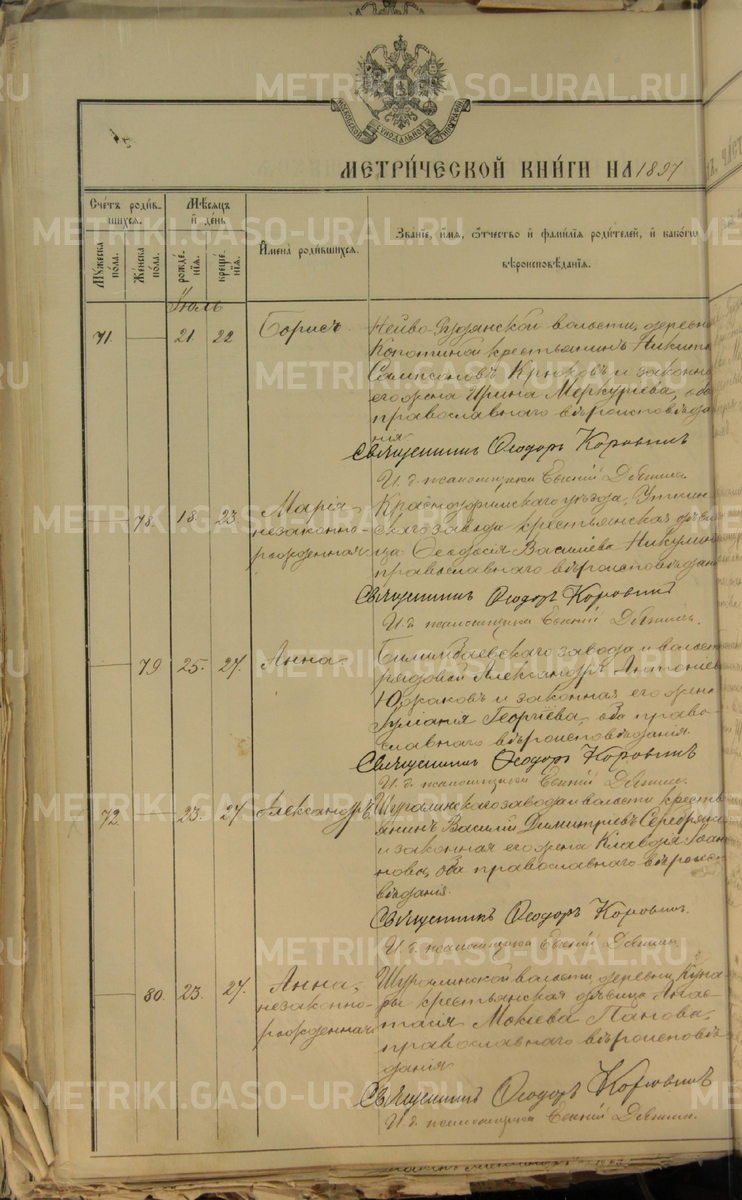 МОСКОВСКОЙ СѴНОДАЛЬНОЙ ТИПОГРАФІИ
МЕТРИ́ЧЕСКОЙ КНИ́ГИ НА 1897
Сче́тъ роди́в-
шихся.
Мѣ́сяцъ
и҆ де́нь
Му́жеска
по́ла.
Же́нска
по́ла.
рожде́-
нїя.
креще́-
нїя.
И҆мена̀ роди́вшихся.
Зва́нїе, и҆́мя, ѻ҆́тчество и҆ фами́лїя роди́телей, и҆ како́гѡ
вѣроисповѣ́данїя.
Іюль
71. — 21 22 Борисъ
Нейво-Рудянской волости, деревни
крестьянинъ Никита
Сампсоновъ Крюковъ и законная
его жена Ирина Меркуріева, оба
православнаго вѣроисповѣда-
нія.
Священникъ Ѳеодоръ Коровинъ
И. д. псаломщика Евгеній
— 78. 18. 23. Марія
незаконно-
рожденная
Красноуфимскаго уѣзда, Уткин-
скаго завода крестьянская дѣви-
ца Ѳеодосія Васильева Никулина
православнаго вѣроисповѣданія
Священникъ Ѳеодоръ Коровинъ
И. д. псаломщика Евгеній
— 79 25. 27. Анна.
Билимбаевскаго завода и волости
рядовой Александръ Антоніевъ
Южаковъ и законная его жена
Іуліанія Георгіева, оба право-
славнаго вѣроисповѣданія.
Священникъ Ѳеодоръ Коровинъ
И. д. псаломщика Евгеній
72. — 23. 27. Александръ.
Шуралинскаго завода и волости кресть-
янинъ Василій Димитріевъ
и законная его жена Клавдія Іоан-
нова, оба православнаго вѣроиспо-
вѣданія.
Священникъ Ѳеодоръ Коровинъ.
И. д. псаломщика Евгеній
— 80. 23. 27. Анна,
незаконно-
рожденная
Шуралинской волости, деревни Куна-
ры крестьянская дѣвица Анас-
тасія Мокіева Панова,
православнаго вѣроисповѣ-
данія
Священникъ Ѳеодоръ Коровинъ
И. д. псаломщика Евгеній
METRIKI.GASO-URAL.RU